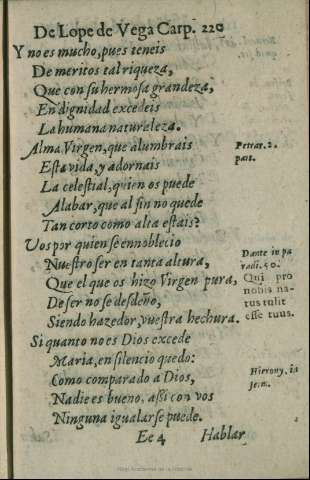 De Lope de Vega Carp. 220
Y no es mucho, pues teneis
De meritos tal riqueza,
Que con su hermosa grandeza,
En dignidad excedeis
La humana naturaleza.
Alma Virgen, que alumbrais
Petrar. 2.
part.
Esta vida, y adornais
La celestial, quien os puede
Alabar, que al fin no quede
Tan corto como alta estais?
Vos por quien se ennoblecio
Dante in pa
radi. 50.
Nuestro ser en tanta altura,
Que el que os hizo Virgen pura,
Qui pro
nobis na-
tus tulit
esse tuus.
De ser no se desdeño,
Siendo hazedor, vuestra hechura.
Si quanto no es Dios excede
Maria, en silencio quedo:
Hierony. in
Jere.
Como comparado a Dios,
Nadie es bueno, assi con vos
Ninguna igualarse puede.
Ee 4
Hablar